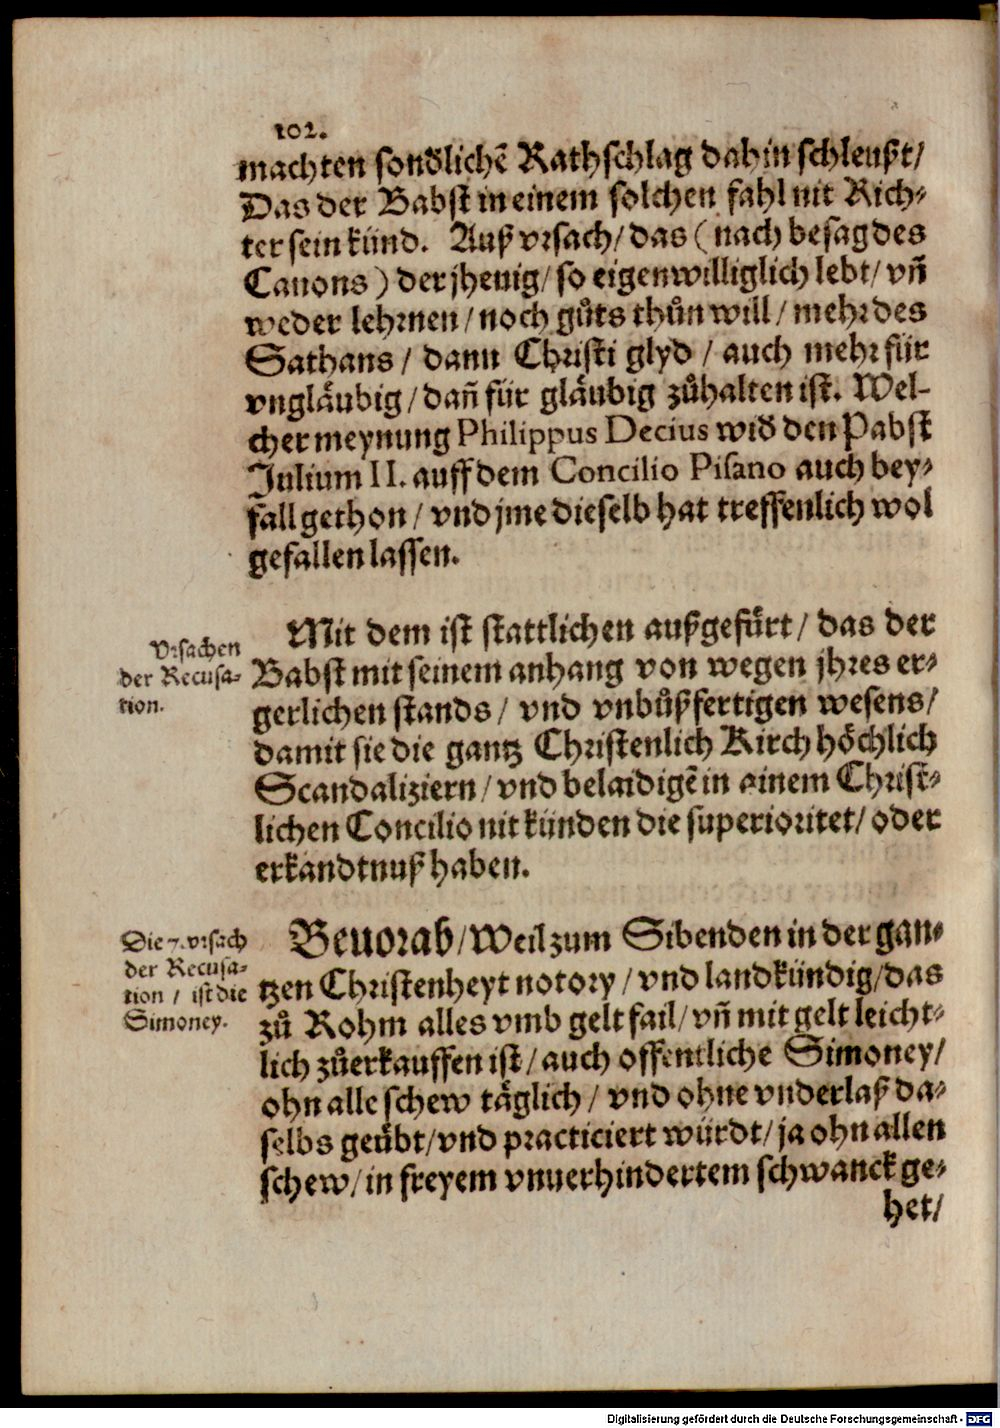 102.
machten sonđlichẽ Rathschlag dahin schleußt/
Das der Babst in einem solchen fahl nit Rich-
ter sein künd. Auß vrsach/ das (nach besag des
Canons) der jhenig/ so eigenwilliglich lebt/ vñ
weder lehrnen/ noch gůts thůn will/ mehr des
Sathans/ dann Christi glyd/ auch mehr für
vngläubig/ dañ für gläubig zůhalten ist. Wel-
cher meynung Philippus Decius widđ den Pabst
Julium II. auff dem Concilio Pisano auch bey-
fall gethon/ vnd jme dieselb hat treffenlich wol
gefallen lassen.
Mit dem ist stattlichen außgefürt/ das der
Vrsachen
Babst mit seinem anhang von wegen jhres er-
der Recusa-
gerlichen stands/ vnd vnbůßfertigen wesens/
tion.
damit sie die gantz Christenlich Kirch höchlich
Scandaliziern/ vnd belaidigẽ in ainem Christ-
lichen Concilio nit künden die superioritet/ oder
erkandtnuß haben.
Beuorab/ Weil zum Sibenden in der gan-
Die 7. vrsach
der Recusa-
tion/ ist die
Simoney.
tzen Christenheyt notory/ vnd landkündig/ das
zů Rohm alles vmb gelt fail/ vñ mit gelt leicht-
lich zůerkauffen ist/ auch offentliche Simoney/
ohn alle schew täglich/ vnd ohne vnderlaß da-
selbs geübt/ vnd practiciert würdt/ ja ohn allen
schew/ in freyem vnuerhindertem schwanck ge-
het/
Digitalisierung gefördert durch die Deutsche Forschungsgemeinschaft - DFG